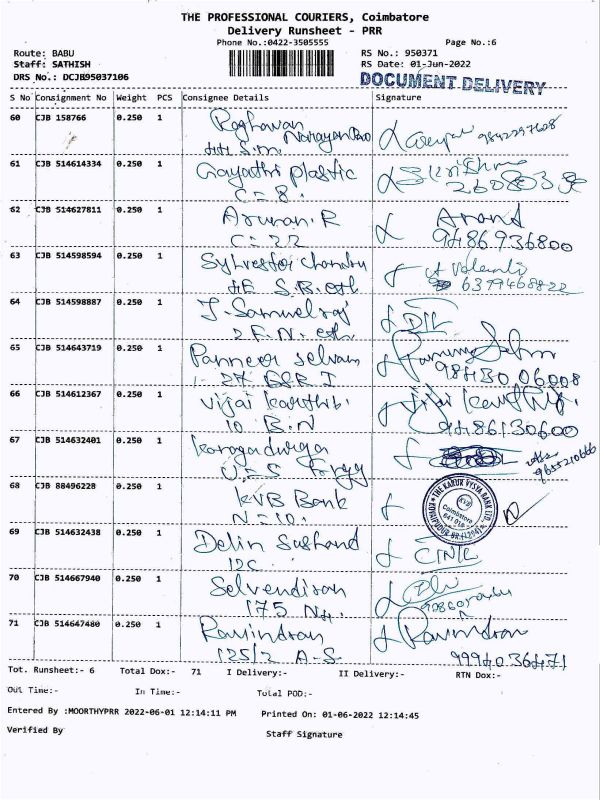 THE PROFESSIONAL COURIERS, Coimbatore
Delivery Runsheet - PRR
Phone No.:0422-3505555 Page No.:6
Route: BABU RS No.: 950371
Staff: SATHISH RS Date: 01-Jun-2022
DRS No.: DCJB95037106 DOCUMENT DELIVERY
S No Consignment No Weight PCS Consignee Details Signature
60 CJB 158766 0.250 1 Raghavan
Narayan 9842297608
61 CJB 514614334 0.250 1 Gayathri plastic
C = 8.
62 CJB 514627811 0.250 1 Arunan. R Anand
C = 22 9486936800
63 CJB 514598594 0.250 1 Sylvester Chandru
S.B. 6379468822
64 CJB 514598887 0.250 1 J. Samuel raj
2 F.N.
65 CJB 514643719 0.250 1 Panneer selvam
1-27 98430 06008
66 CJB 514612367 0.250 1 Vijai
10 B.N 9486130600
67 CJB 514632401 0.250 1
9655210666
68 CJB 88496228 0.250 1 KVB Bank THE KARUR VYSYA BANK LTD. KVB Coimbatore
N = 10.
69 CJB 514632438 0.250 1 Delin
12C
70 CJB 514667940 0.250 1 Selvendiran
175
71 CJB 514647480 0.250 1 Ravindran Ravindran
125/2 A-S 9994036471
Tot. Runsheet:- 6 Total Dox:- 71 I Delivery:- II Delivery:- RTN Dox:-
Out Time:- In Time:- Total POD:-
Entered By :MOORTHYPRR 2022-06-01 12:14:11 PM Printed On: 01-06-2022 12:14:45
Verified By Staff Signature